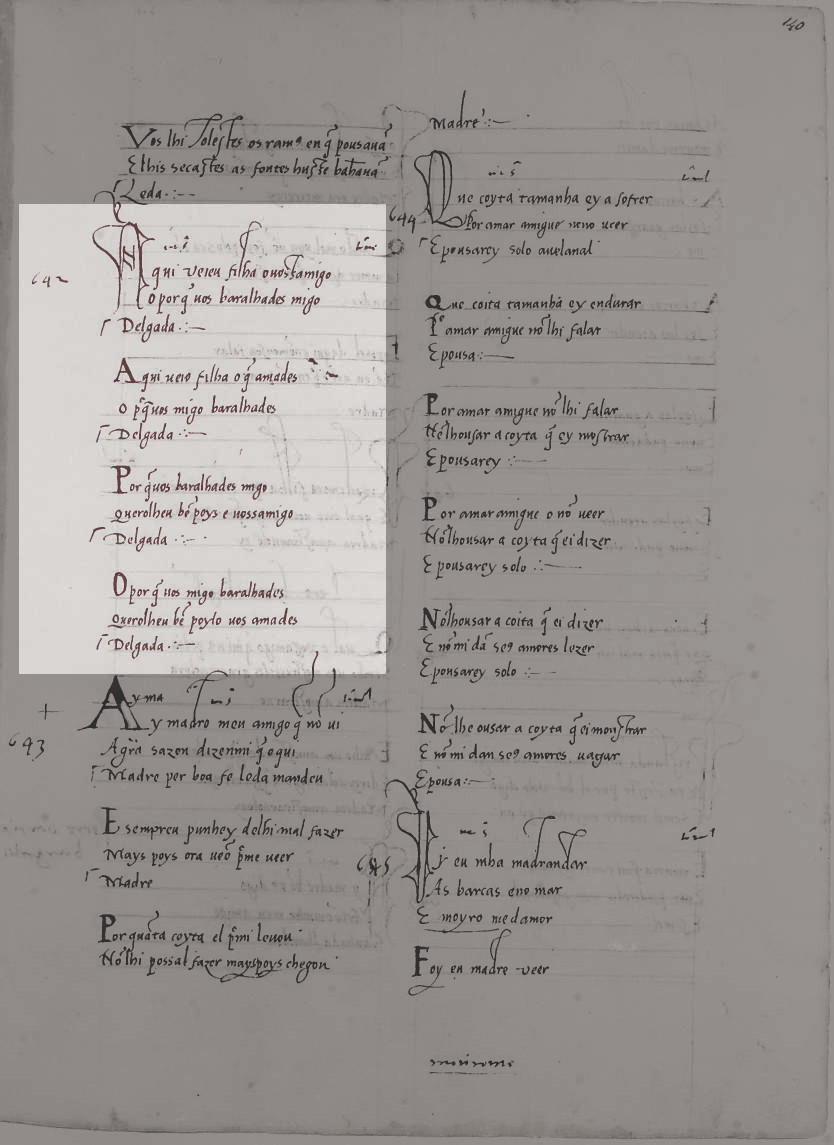 140
Vos lhi tolestes os ramꝯ en q̄ pousauā
Elhis secastes as fontes huss̄e bahauā
Leda
642
A qui ueieu filha ouostamigo
O por q̄ uos baralhades migo
Delgada
A qui ueio filha o q̄ amades
o p̄ q̄uos migo baralhades
Delgada
Por q̄uos baralhades migo
Querolheu bē poys e uossamigo
Delgada
O por q̄ uos migo baralhades
Querolheu bē poylo uos amades
Delgada
643
Ay ma
Ay madro meu amigo q̄ nō ui
Agrā sazon dizenmi q̄ e qui
Madre per boa fe leda mandeu
E sempreu punhey delhi mal fazer
Mays poys ora ueō p̄me ueer
Madre
Por quāta coyta el p̄mi leuou
Nō lhi possal fazer mayspoys chegou
Madre
644
Que coyta tamanha ey a sofrer
Por amar amigue nono ueer
E pousarey solo auelanal
Que coita tamanha ey endurar
Por amar amigue nō lhi falar
E pousa
Por amar amigue nō lhi falar
Nē lhousar a coyta q̄ ey mostrar
E pousarey
Por amar amigue o nō ueer
Nō lhousar a coyta q̄ ei dizer
E pousarey solo
Nō lhousar a coita q̄ ei dizer
E nō mi dā seꝯ amores lezer
E pousarey solo
Nō lhe ousar a coyta q̄ ei monstrar
E nō mi dan seꝯ amores uagar
E pousa
645
Ir eu mha madrandar
As barcas eno mar
E moyro me damor
Foy eu madre ueer